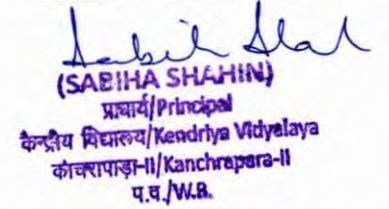 (SABIHA SHAHIN)
प्राचार्य/Principal
केन्द्रीय विद्यालय/Kendriya Vidyalaya
काँचरापाड़ा-II/Kanchrapara-II
प.व./W.B.